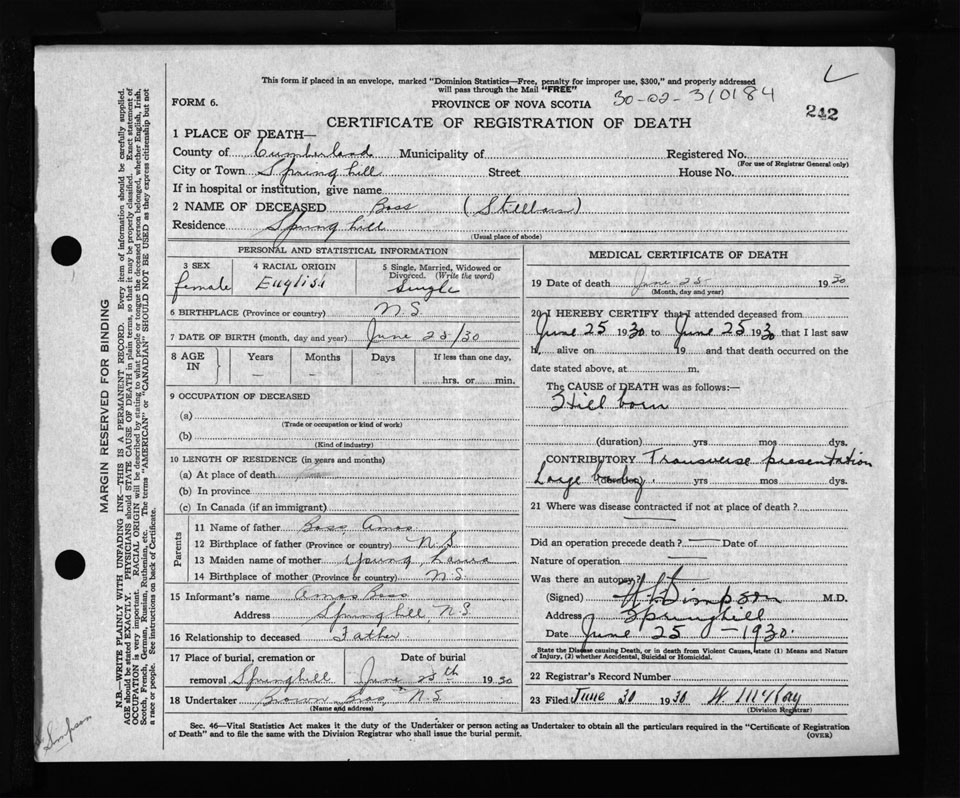 This form if placed in an envelope, marked "Dominion Statistics—Free, penalty for improper use, $300," and properly addressed
will pass through the Mail "FREE"
30-02-310184
FORM 6.
PROVINCE OF NOVA SCOTIA
242
CERTIFICATE OF REGISTRATION OF DEATH
1 PLACE OF DEATH—
County of Cumberland Municipality of Registered No.
(For use of Registrar General only)
City or Town Spring hill Street House No.
If in hospital or institution, give name
2 NAME OF DECEASED Boss (Stillborn)
Residence Spring hill
(Usual place of abode)
PERSONAL AND STATISTICAL INFORMATION
3 SEX
female
4 RACIAL ORIGIN
English
5 Single, Married, Widowed or
Divorced. (Write the word)
Single
6 BIRTHPLACE (Province or country) N.S.
7 DATE OF BIRTH (month, day and year) June 25/30
8 AGE IN
Years — Months — Days If less than one day,
hrs. or min.
9 OCCUPATION OF DECEASED
(a)
(Trade or occupation or kind of work)
(b)
(Kind of industry)
10 LENGTH OF RESIDENCE (in years and months)
(a) At place of death
(b) In province
(c) In Canada (if an immigrant)
Parents
11 Name of father Boss, Amos
12 Birthplace of father (Province or country) N.S.
13 Maiden name of mother Young, Laura
14 Birthplace of mother (Province or country) N.S.
15 Informant's name Amos Boss
Address Springhill, N.S.
16 Relationship to deceased Father
17 Place of burial, cremation or
removal Springhill
Date of burial
June 25th 1930
18 Undertaker Brown Bros N.S.
(Name and address)
MEDICAL CERTIFICATE OF DEATH
19 Date of death June 25 1930
(Month, day and year)
20 I HEREBY CERTIFY that I attended deceased from
June 25 1930 to June 25 1930 that I last saw
h alive on 19 and that death occurred on the
date stated above, at m.
The CAUSE of DEATH was as follows:—
Still born
(duration) yrs mos dys.
CONTRIBUTORY Transverse presentation
Large yrs mos dys.
21 Where was disease contracted if not at place of death?
Did an operation precede death? — Date of
Nature of operation
Was there an autopsy?
(Signed) Simpson M.D.
Address Springhill
Date June 25 — 1930.
State the Disease causing Death, or in death from Violent Causes, state (1) Means and Nature
of Injury, (2) whether Accidental, Suicidal or Homicidal.
22 Registrar's Record Number
23 Filed June 30 1930 W. McKay
(Division Registrar)
Sec. 46—Vital Statistics Act makes it the duty of the Undertaker or person acting as Undertaker to obtain all the particulars required in the "Certificate of Registration
of Death" and to file the same with the Division Registrar who shall issue the burial permit.
(OVER)
MARGIN RESERVED FOR BINDING
N.B.—WRITE PLAINLY WITH UNFADING INK—THIS IS A PERMANENT RECORD. Every item of information should be carefully supplied.
AGE should be stated EXACTLY. PHYSICIANS should STATE CAUSE OF DEATH in plain terms, so that it may be properly classified. Exact statement of
OCCUPATION is very important. RACIAL ORIGIN will be described by stating to what people or tongue the deceased person belonged, whether English, Irish,
Scotch, French, German, Russian, Ruthenian, etc. The terms "AMERICAN" or "CANADIAN" SHOULD NOT BE USED as they express citizenship but not
a race or people. See instructions on back of Certificate.
Simpson